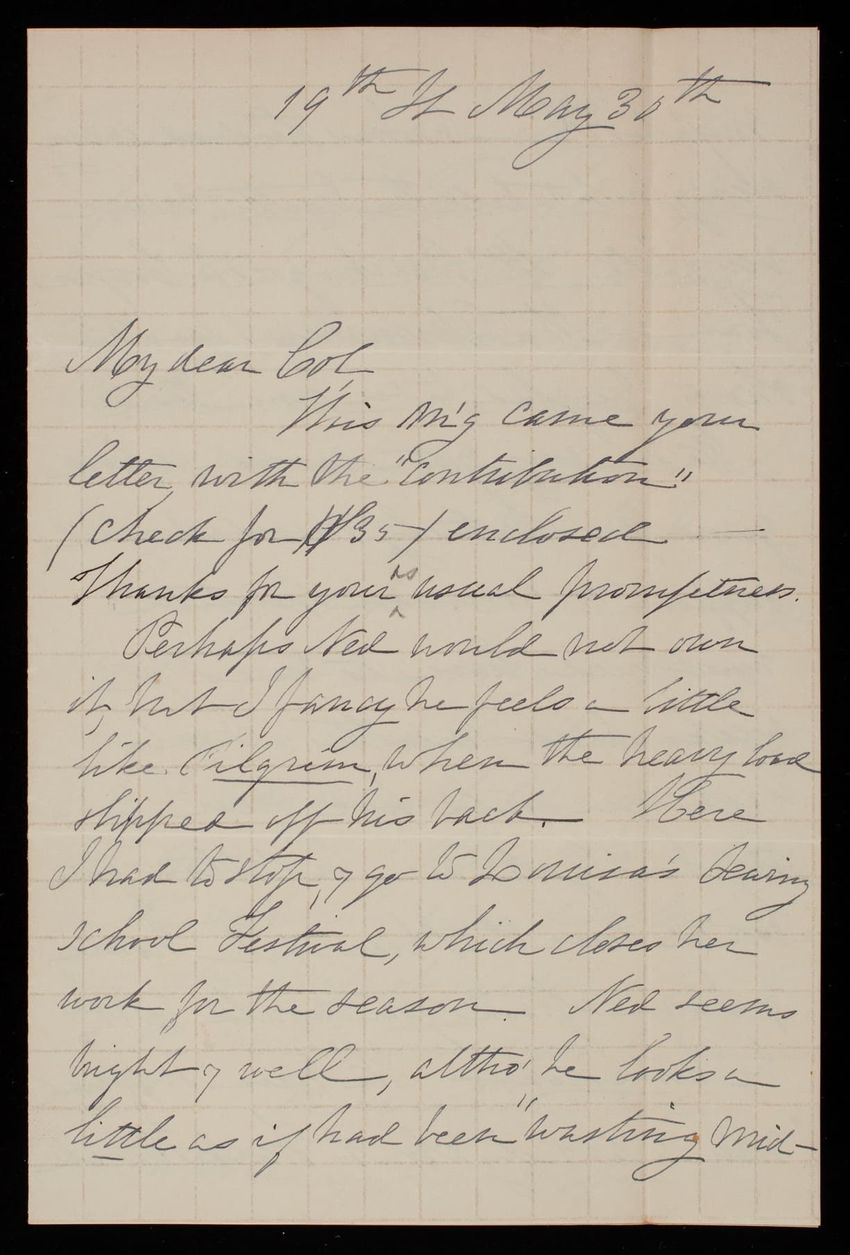 19th St May 30th
My dear Col,
This m'g came your
letter, with the "contribution"
(check for $35) enclosed —
Thanks for your as usual promptness.
Perhaps Ned would not own
it, but I fancy he feels a little
like Pilgrim, when the heavy load
slipped off his back. Here
I had to stop, & go to Louisa's Sewing
school Festival, which closes her
work for the season. Ned seems
bright & well, altho' he looks a
little as if had been "wasting mid-